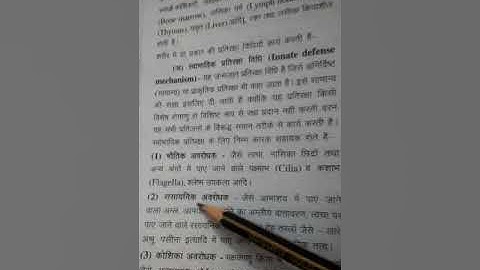 (Bone marrow),
(Thymus), यकृत (Liver) आदि),
होती है।
शरीर में दो प्रकार की प्रतिरक्षा विधियाँ कार्य करती हैं-
(अ) स्वाभाविक प्रतिरक्षा विधि (Innate defense
mechanism)- यह जन्मजात प्रतिरक्षा विधि है जिसे अनिर्दिष्ट
(सामान्य) या प्राकृतिक प्रतिरक्षा भी कहा जाता है। इसे सामान्य
की संज्ञा इसलिए दी जाती है क्योंकि यह प्रतिरक्षा किसी
विशेष रोगाणु से विशिष्ट रूप से रक्षा प्रदान नहीं करती वरन्
यह सभी प्रतिजनों के विरुद्ध समान तरीके से कार्य करती है।
स्वाभाविक प्रतिरक्षा के लिए निम्न कारक सहायक होते हैं-
(1) भौतिक अवरोधक - जैसे त्वचा, नासिका छिद्रों तथा
अन्य अंगों में पाए जाने वाले पक्ष्माभ (Cilia) व कशाभ
(Flagella), श्लेष्म उपकला आदि।
(2) रासायनिक अवरोधक - जैसे आमाशय में पाए जाने
वाला अम्ल, का अम्लीय वातावरण, त्वचा पर
पाए जाने वाले जैसे - लार
अश्रु, पसीना इत्यादि में पाए तत्व।
(3) कोशिका अवरोधक -